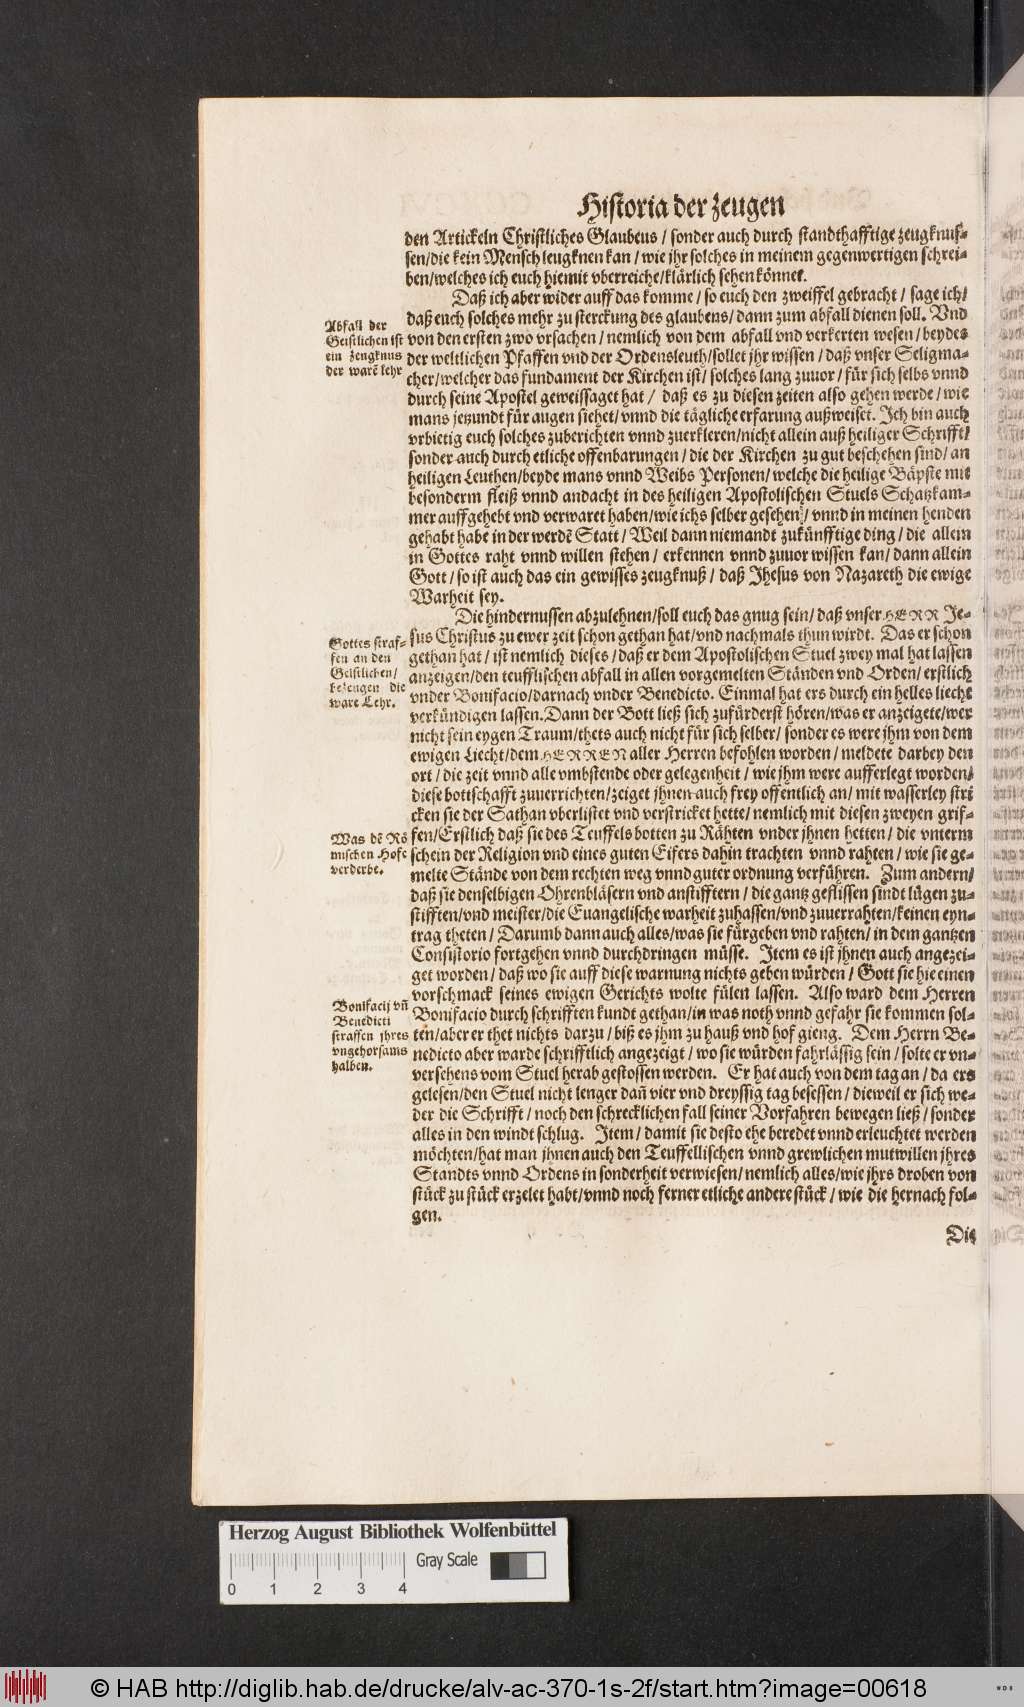 Historia der zeugen
den Artickeln Christliches Glaubeus / sonder auch durch standthafftige zeugknus-
sen/die kein Mensch leugknen kan / wie jhr solches in meinem gegenwertigen schrei-
ben/welches ich euch hiemit vberreiche/klärlich sehen könnet.
Daß ich aber wider auff das komme / so euch den zweiffel gebracht / sage ich/
daß euch solches mehr zu sterckung des glaubens/ dann zum abfall dienen soll. Vnd
von den ersten zwo vrsachen / nemlich von dem abfall vnd verkerten wesen / beydes
der weltlichen Pfaffen vnd der Ordensleuth/sollet jhr wissen / daß vnser Seligma-
cher/welcher das fundament der Kirchen ist/ solches lang zuuor / für sich selbs vnnd
durch seine Apostel geweissaget hat / daß es zu diesen zeiten also gehen werde / wie
mans jetzundt für augen siehet/ vnnd die tägliche erfarung außweiset. Ich bin auch
vrbietig euch solches zuberichten vnnd zuerkleren/nicht allein auß heiliger Schrifft/
sonder auch durch etliche offenbarungen / die der Kirchen zu gut beschehen sind/ an
heiligen Leuthen/beyde mans vnnd Weibs Personen/ welche die heilige Bäpste mit
besonderm fleiß vnnd andacht in des heiligen Apostolischen Stuels Schatzkam-
mer auffgehebt vnd verwaret haben/wie ichs selber gesehen / vnnd in meinen henden
gehabt habe in der werdẽ Statt / Weil dann niemandt zukünfftige ding / die allein
in Gottes raht vnnd willen stehen / erkennen vnnd zuuor wissen kan/ dann allein
Gott / so ist auch das ein gewisses zeugknuß / daß Jhesus von Nazareth die ewige
Warheit sey.
Die hindernussen abzulehnen/soll euch das gnug sein/ daß vnser HERR Je-
sus Christus zu ewer zeit schon gethan hat/vnd nachmals thun wirdt. Das er schon
gethan hat / ist nemlich dieses / daß er dem Apostolischen Stuel zwey mal hat lassen
anzeigen/den teufflischen abfall in allen vorgemelten Ständen vnd Orden/ erstlich
vnder Bonifacio/darnach vnder Benedicto. Einmal hat ers durch ein helles liecht
verkündigen lassen. Dann der Bott ließ sich zufürderst hören/was er anzeigete/wer
nicht sein eygen Traum/thets auch nicht für sich selber/ sonder es were jhm von dem
ewigen Liecht/dem HERREN aller Herren befohlen worden/ meldete darbey den
ort / die zeit vnnd alle vmbstende oder gelegenheit / wie jhm were aufferlegt worden/
diese bottschafft zuuerrichten/zeiget jhnen auch frey offentlich an/ mit wasserley stri
cken sie der Sathan vberlistet vnd verstricket hette/ nemlich mit diesen zweyen grif-
fen/Erstlich daß sie des Teuffels botten zu Rähten vnder jhnen hetten/ die vnterm
schein der Religion vnd eines guten Eifers dahin trachten vnnd rahten / wie sie ge-
melte Stände von dem rechten weg vnnd guter ordnung verführen. Zum andern/
daß sie denselbigen Ohrenbläsern vnd anstifftern / die gantz geflissen sindt lügen zu-
stifften/vnd meister/die Euangelische warheit zuhassen/vnd zuuerrahten/keinen eyn-
trag theten / Darumb dann auch alles/was sie fürgeben vnd rahten/ in dem gantzen
Consistorio fortgehen vnnd durchdringen müsse. Item es ist jhnen auch angezei-
get worden/ daß wo sie auff diese warnung nichts geben würden / Gott sie hie einen
vorschmack seines ewigen Gerichts wolte fülen lassen. Also ward dem Herren
Bonifacio durch schrifften kundt gethan/in was noth vnnd gefahr sie kommen sol-
ten/aber er thet nichts darzu / biß es jhm zu hauß vnd hof gieng. Dem Herrn Be-
nedicto aber warde schrifftlich angezeigt / wo sie würden fahrlässig sein / solte er vn-
versehens vom Stuel herab gestossen werden. Er hat auch von dem tag an / da ers
gelesen/den Stuel nicht lenger dañ vier vnd dreyssig tag besessen / dieweil er sich we-
der die Schrifft / noch den schrecklichen fall seiner Vorfahren bewegen ließ / sonder
alles in den windt schlug. Item / damit sie desto ehe beredet vnnd erleuchtet werden
möchten/hat man jhnen auch den Teuffellischen vnnd grewlichen mutwillen jhres
Standts vnnd Ordens in sonderheit verwiesen/ nemlich alles/wie jhrs droben von
stück zu stück erzelet habt/vnnd noch ferner etliche andere stück / wie die hernach fol-
gen.
Die
Abfall der
Geistlichen ist
ein zeugknus
der warẽ lehr
Gottes straf-
fen an den
Geistlichen/
bezeugen die
ware Lehr.
Was dẽ Rö
mischen Hofe
verderbe.
Bonifacij vñ
Benedicti
straffen jhres
vngehorsams
halben.
Herzog August Bibliothek Wolfenbüttel
Gray Scale
0 1 2 3 4
© HAB http://diglib.hab.de/drucke/alv-ac-370-1s-2f/start.htm?image=00618